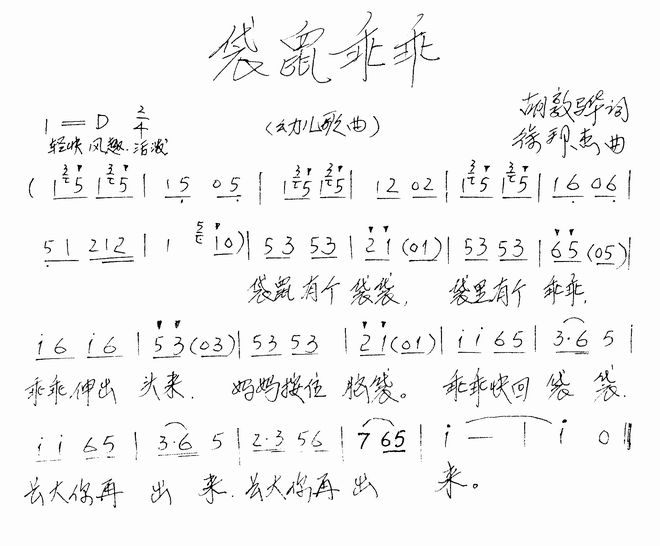 袋鼠乖乖
1=D 2/4
(幼儿歌曲)
胡敦骅词
轻快 风趣.活泼
徐邦杰曲
( 1 3 5 1 3 5 | 1 5 0 5 | 1 5 5 1 5 5 | 1 2 0 2 | 1 3 5 1 3 5 | 1 6 0 6 |
5 1 2 1 2 | 1 5 i 0 ) | 5 3 5 3 | 2 1 (0 1) | 5 3 5 3 | 6 5 (0 5) |
袋鼠有个 袋袋, 袋里有个 乖乖,
i 6 i 6 | 5 3 (0 3) | 5 3 5 3 | 2 1 (0 1) | i i 6 5 | 3·6 5 |
乖乖伸出 头来. 妈妈按住 脑袋。 乖乖快回 袋 袋.
i i 6 5 | 3·6 5 | 2·3 5 6 | 7 6 5 | i — | i 0 ‖
长大你再 出 来. 长大你再 出 来。